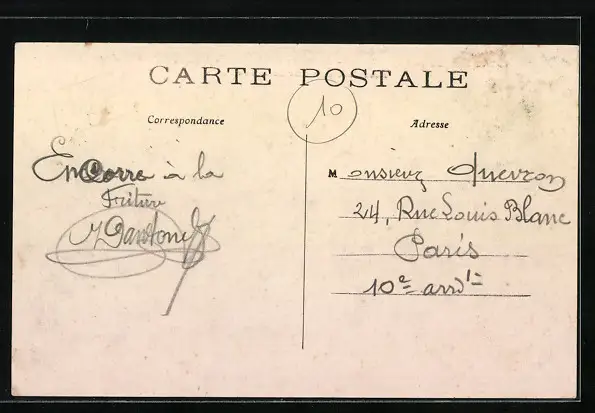 CARTE POSTALE
10
Correspondance
Adresse
Encorre à la
Friture
Monsieur Quevron
24, Rue Louis Blanc
Paris
10e arrdt